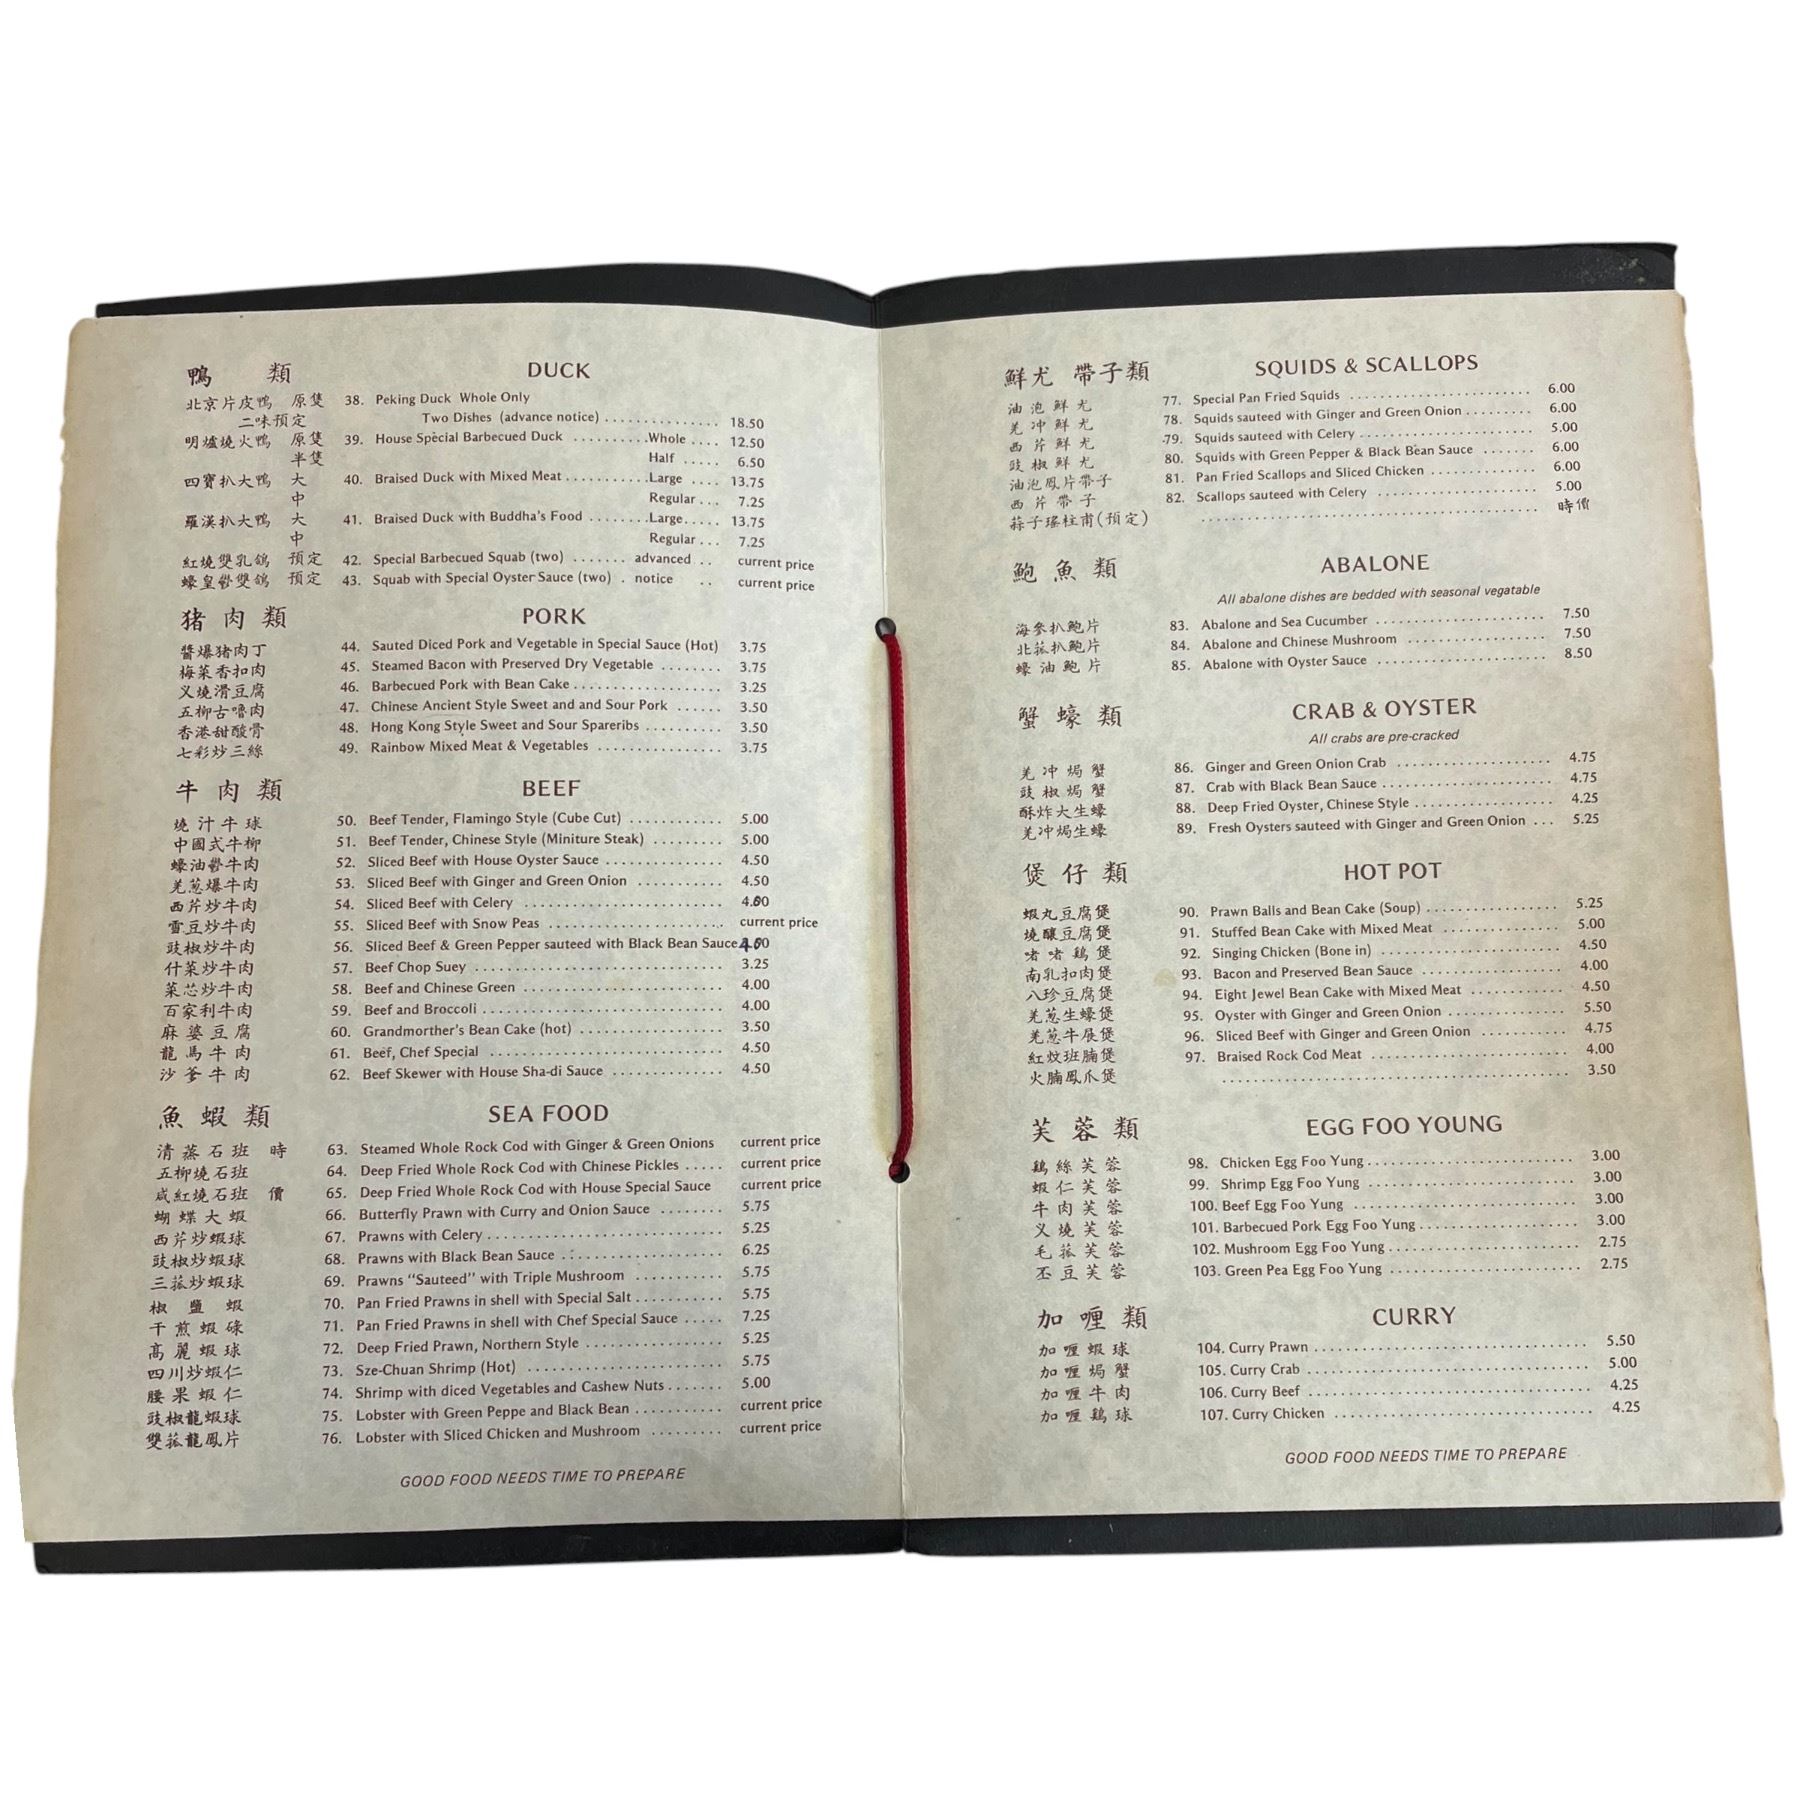 鴨 類 DUCK
北京片皮鴨 原隻 38. Peking Duck Whole Only
二味預定 Two Dishes (advance notice) ............... 18.50
明爐燒火鴨 原隻 39. House Special Barbecued Duck ..........Whole .... 12.50
半隻 Half ..... 6.50
四寶扒大鴨 大 40. Braised Duck with Mixed Meat ...........Large .... 13.75
中 Regular ... 7.25
羅漢扒大鴨 大 41. Braised Duck with Buddha's Food ........Large..... 13.75
中 Regular ... 7.25
紅燒雙乳鴿 預定 42. Special Barbecued Squab (two) ....... advanced .. current price
蠔皇礐雙鴿 預定 43. Squab with Special Oyster Sauce (two) . notice .. current price
猪肉類 PORK
醬爆猪肉丁 44. Sauted Diced Pork and Vegetable in Special Sauce (Hot) 3.75
梅菜香扣肉 45. Steamed Bacon with Preserved Dry Vegetable ........ 3.75
义燒滑豆腐 46. Barbecued Pork with Bean Cake .................... 3.25
五柳古嚕肉 47. Chinese Ancient Style Sweet and and Sour Pork ...... 3.50
香港甜酸骨 48. Hong Kong Style Sweet and Sour Spareribs .......... 3.50
七彩炒三絲 49. Rainbow Mixed Meat & Vegetables ................. 3.75
牛肉類 BEEF
燒汁牛球 50. Beef Tender, Flamingo Style (Cube Cut) ............. 5.00
中國式牛柳 51. Beef Tender, Chinese Style (Miniture Steak) .......... 5.00
蠔油礐牛肉 52. Sliced Beef with House Oyster Sauce ............... 4.50
羌葱爆牛肉 53. Sliced Beef with Ginger and Green Onion ............ 4.50
西芹炒牛肉 54. Sliced Beef with Celery ........................... 4.00
雪豆炒牛肉 55. Sliced Beef with Snow Peas ....................... current price
豉椒炒牛肉 56. Sliced Beef & Green Pepper sauteed with Black Bean Sauce
什菜炒牛肉 57. Beef Chop Suey ................................ 3.25
菜芯炒牛肉 58. Beef and Chinese Green .......................... 4.00
百家利牛肉 59. Beef and Broccoli ............................... 4.00
麻婆豆腐 60. Grandmorther's Bean Cake (hot) ................... 3.50
龍馬牛肉 61. Beef, Chef Special .............................. 4.50
沙爹牛肉 62. Beef Skewer with House Sha-di Sauce .............. 4.50
魚蝦類 SEA FOOD
清蒸石班 時 63. Steamed Whole Rock Cod with Ginger & Green Onions current price
五柳燒石班 64. Deep Fried Whole Rock Cod with Chinese Pickles ..... current price
咸紅燒石班 價 65. Deep Fried Whole Rock Cod with House Special Sauce current price
蝴蝶大蝦 66. Butterfly Prawn with Curry and Onion Sauce ........ 5.75
西芹炒蝦球 67. Prawns with Celery ............................... 5.25
豉椒炒蝦球 68. Prawns with Black Bean Sauce ..................... 6.25
三菰炒蝦球 69. Prawns "Sauteed" with Triple Mushroom ........... 5.75
椒鹽蝦 70. Pan Fried Prawns in shell with Special Salt ........... 5.75
干煎蝦碌 71. Pan Fried Prawns in shell with Chef Special Sauce ..... 7.25
高麗蝦球 72. Deep Fried Prawn, Northern Style .................. 5.25
四川炒蝦仁 73. Sze-Chuan Shrimp (Hot) ......................... 5.75
腰果蝦仁 74. Shrimp with diced Vegetables and Cashew Nuts ....... 5.00
豉椒龍蝦球 75. Lobster with Green Peppe and Black Bean ........... current price
雙菰龍鳳片 76. Lobster with Sliced Chicken and Mushroom ......... current price
GOOD FOOD NEEDS TIME TO PREPARE
鮮尤 帶子類 SQUIDS & SCALLOPS
油泡鮮尤 77. Special Pan Fried Squids ........................ 6.00
羌冲鮮尤 78. Squids sauteed with Ginger and Green Onion ......... 6.00
西芹鮮尤 79. Squids sauteed with Celery ....................... 5.00
豉椒鮮尤 80. Squids with Green Pepper & Black Bean Sauce ....... 6.00
油泡鳳片帶子 81. Pan Fried Scallops and Sliced Chicken .............. 6.00
西芹帶子 82. Scallops sauteed with Celery ..................... 5.00
蒜子瑤柱甫(預定) ............................................. 時價
鮑魚類 ABALONE
All abalone dishes are bedded with seasonal vegatable
海參扒鮑片 83. Abalone and Sea Cucumber ....................... 7.50
北菰扒鮑片 84. Abalone and Chinese Mushroom .................. 7.50
蠔油鮑片 85. Abalone with Oyster Sauce ....................... 8.50
蟹蠔類 CRAB & OYSTER
All crabs are pre-cracked
羌冲焗蟹 86. Ginger and Green Onion Crab ..................... 4.75
豉椒焗蟹 87. Crab with Black Bean Sauce ....................... 4.75
酥炸大生蠔 88. Deep Fried Oyster, Chinese Style ................... 4.25
羌冲焗生蠔 89. Fresh Oysters sauteed with Ginger and Green Onion ... 5.25
煲仔類 HOT POT
蝦丸豆腐煲 90. Prawn Balls and Bean Cake (Soup) .................. 5.25
燒釀豆腐煲 91. Stuffed Bean Cake with Mixed Meat ................ 5.00
啫啫鷄煲 92. Singing Chicken (Bone in) ........................ 4.50
南乳扣肉煲 93. Bacon and Preserved Bean Sauce .................. 4.00
八珍豆腐煲 94. Eight Jewel Bean Cake with Mixed Meat ............ 4.50
羌葱生蠔煲 95. Oyster with Ginger and Green Onion ............... 5.50
羌葱牛展煲 96. Sliced Beef with Ginger and Green Onion ........... 4.75
紅炆班腩煲 97. Braised Rock Cod Meat ......................... 4.00
火腩鳳爪煲 .............................................. 3.50
芙蓉類 EGG FOO YOUNG
鷄絲芙蓉 98. Chicken Egg Foo Yung ........................... 3.00
蝦仁芙蓉 99. Shrimp Egg Foo Yung ........................... 3.00
牛肉芙蓉 100. Beef Egg Foo Yung ............................ 3.00
义燒芙蓉 101. Barbecued Pork Egg Foo Yung .................... 3.00
毛菰芙蓉 102. Mushroom Egg Foo Yung ......................... 2.75
丕豆芙蓉 103. Green Pea Egg Foo Yung ......................... 2.75
加喱類 CURRY
加喱蝦球 104. Curry Prawn .................................... 5.50
加喱焗蟹 105. Curry Crab ..................................... 5.00
加喱牛肉 106. Curry Beef ..................................... 4.25
加喱鷄球 107. Curry Chicken .................................. 4.25
GOOD FOOD NEEDS TIME TO PREPARE